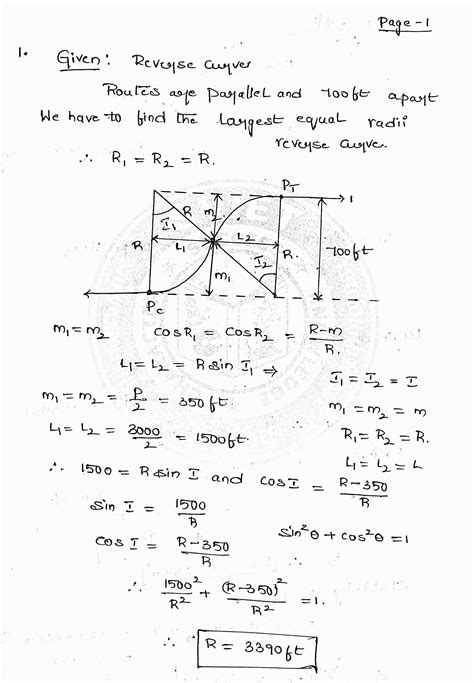 Page-1
1. Given: Reverse curves
Routes are parallel and 700ft apart
We have to find the largest equal radii
reverse curve.
∴ R₁ = R₂ = R.
P_T
1
R
m₂
I₁
R
L₁
L₂
R.
I₂
700ft
m₁
P_C
m₁ = m₂ cosR₁ = cosR₂ = R-m/R.
L₁ = L₂ = R sin I₁ ⇒ I₁ = I₂ = I
m₁ = m₂ = P/2 = 350ft. m₁ = m₂ = m
L₁ = L₂ = 3000/2 = 1500ft. R₁ = R₂ = R.
L₁ = L₂ = L
∴ 1500 = R sin I and cosI = R-350/R
sin I = 1500/R
cos I = R-350/R sin²θ + cos²θ = 1
∴ 1500²/R² + (R-350)²/R² = 1.
∴ R = 3390ft